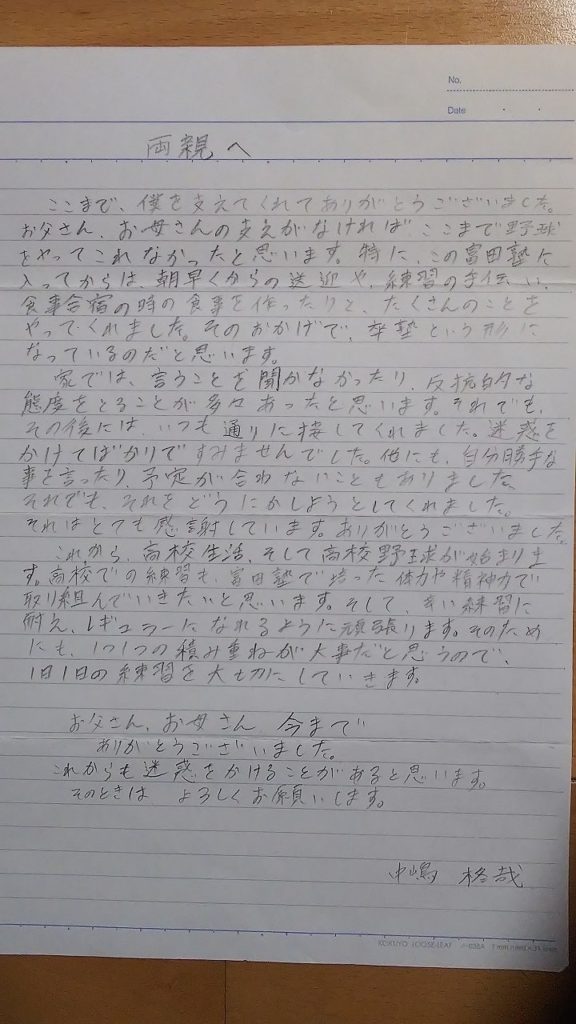 No.
Date
両親へ
ここまで、僕を支えてくれてありがとうございました。
お父さん、お母さんの支えがなければここまで野球
をやってこれなかったと思います。特に、この富田塾に
入ってからは、朝早くからの送迎や、練習の手伝い、
食事合宿の時の食事を作ったりと、たくさんのことを
やってくれました。そのおかげで、卒塾という形に
なっているのだと思います。
家では、言うことを聞かなかったり、反抗的な
態度をとることが多々あったと思います。それでも、
その後には、いつも通りに接してくれました。迷惑を
かけてばかりですみませんでした。他にも、自分勝手な
事を言ったり、予定が合わないこともありました。
それでも、それをどうにかしようとしてくれました。
それはとても感謝しています。ありがとうございました。
これから、高校生活、そして高校野球が始まりま
す。高校での練習も、富田塾で培った体力や精神力で
取り組んでいきたいと思います。そして、辛い練習に
耐え、レギュラーになれるように頑張ります。そのため
にも、1つ1つの積み重ねが大事だと思うので、
1日1日の練習を大切にしていきます。
お父さん、お母さん 今まで
ありがとうございました。
これからも迷惑をかけることがあると思います。
そのときは よろしくお願いします。
中嶋 柊哉
KOKUYO LOOSE-LEAF